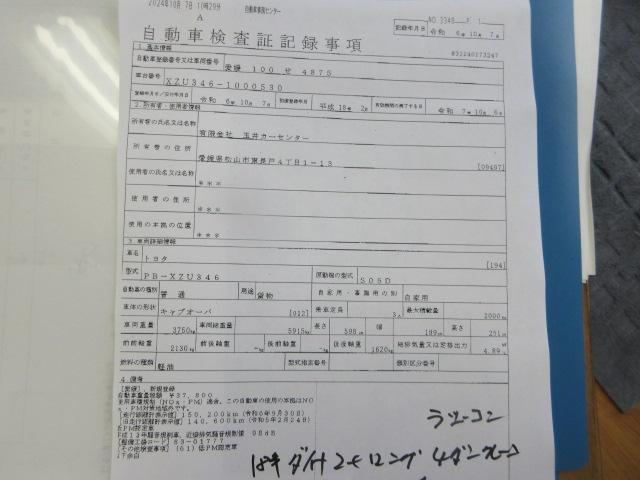 2024年10月 7日 10時29分
A
自動車検査証記録事項
NO.3348 P 1
記録年月日 令和 6年10月 7日
1. 基本情報
自動車登録番号又は車両番号 愛媛 100 せ 4875
車台番号 XZU346-1000530
令和 6年10月 7日 初度登録年月 平成18年 2月 有効期間の満了する日 令和 7年10月 6日
2. 所有者・使用者情報
所有者の氏名又は名称 有限会社 玉井カーセンター
所有者の住所 愛媛県松山市東長戸4丁目1-13 [09497]
使用者の氏名又は名称 ***
使用者の住所 ***
使用の本拠の位置 ***
3. 車両詳細情報
車名 トヨタ [194]
型式 PB-XZU346 原動機の型式 S05D
自動車の種別 普通 用途 貨物 自家用・事業用の別 自家用
車体の形状 キャブオーバ [012] 乗車定員 3人 最大積載量 2000kg
車両重量 3750kg 車両総重量 5915kg 長さ 598cm 幅 189cm 高さ 251cm
前前軸重 2130kg 前後軸重 -kg 後前軸重 -kg 後後軸重 1620kg 総排気量又は定格出力 4.89
燃料の種類 軽油 型式指定番号 類別区分番号
4. 備考
[愛媛], 新規登録
自動車重量税額 ¥37,800
使用車種規制(NOx・PM)適合, この自動車の使用の本拠はNO
x・PM対策地域外です。
[走行距離計表示値] 150,200km (令和6年9月30日)
[旧走行距離計表示値] 140,600km (令和5年2月24日)
平成13年騒音規制車, 近接排気騒音規制値 98dB
[その他検査事項] (61) 低PM認定車
以下余白
ラジコン